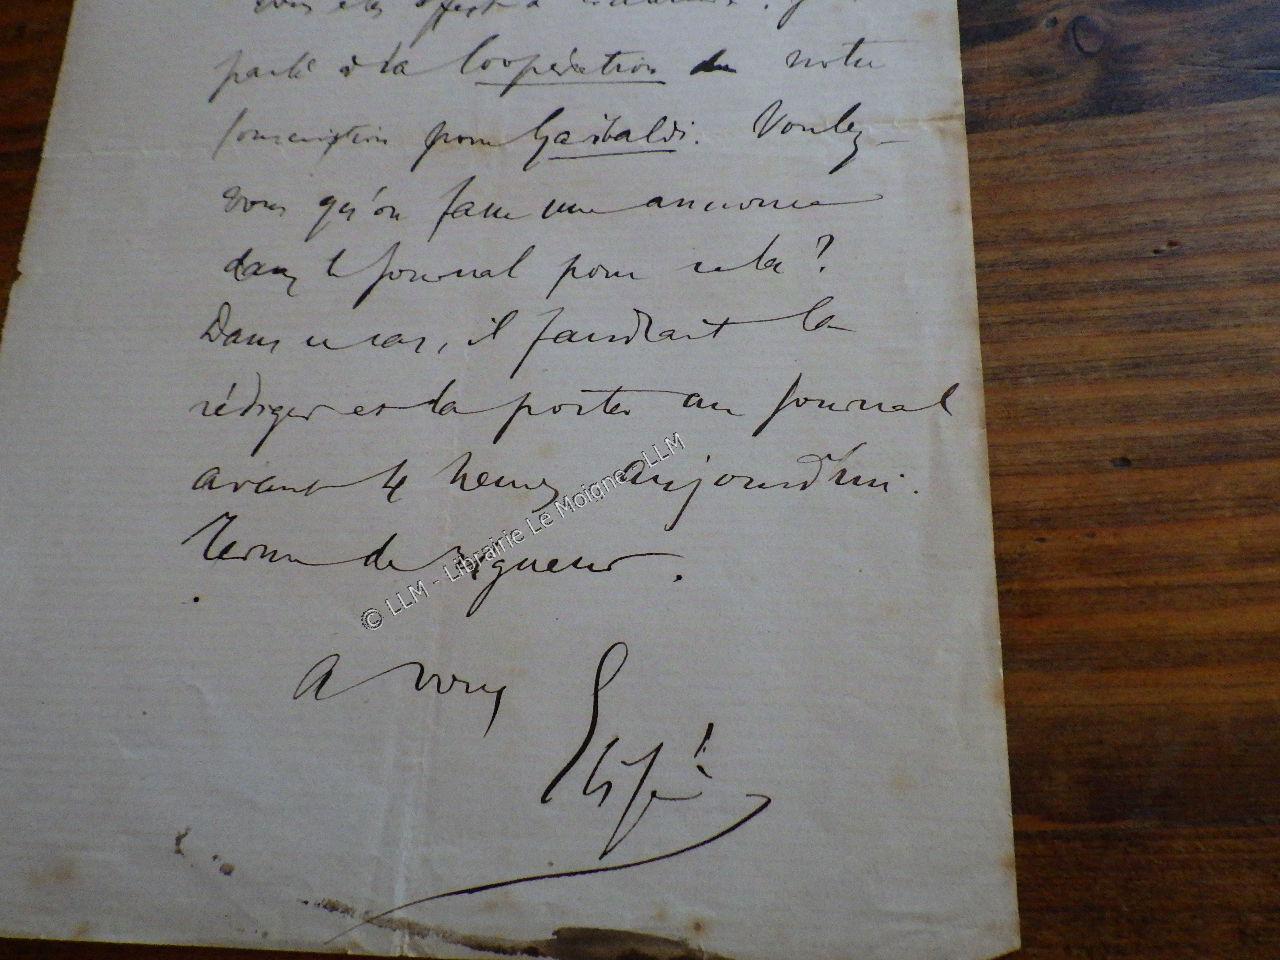 parlé à la Coopération de notre
souscription pour Garibaldi. Voulez-
vous qu'on fasse une annonce
dans le journal pour cela ?
Dans ce cas, il faudrait la
rédiger et la porter au journal
avant 4 heures aujourd'hui.
Terme de rigueur.
A vous
© LLM - Librairie Le Moigne - LLM